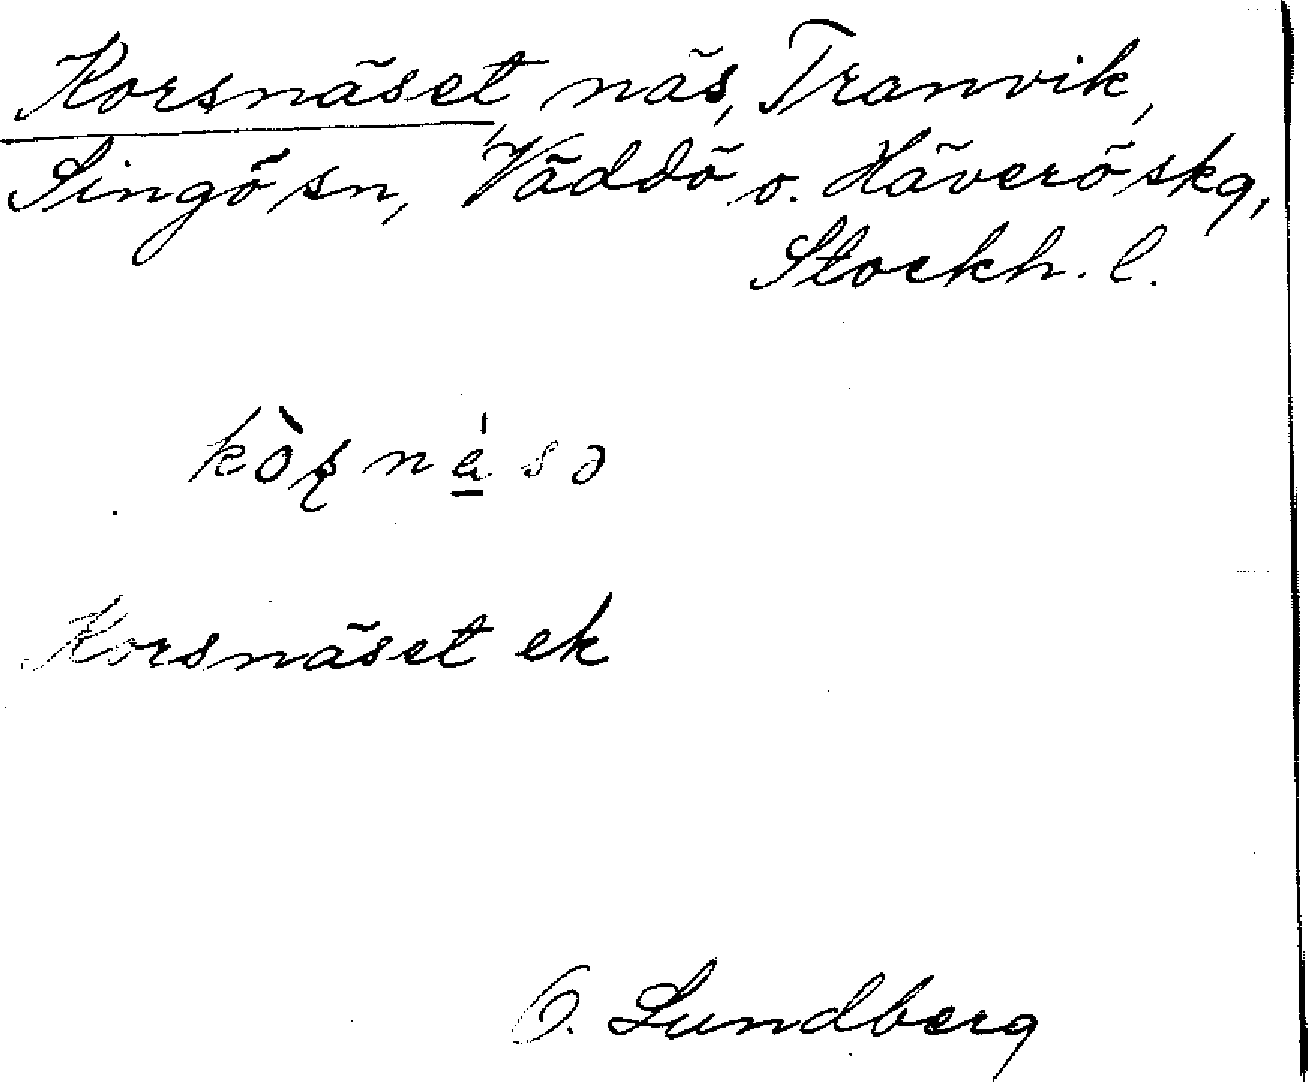 Korsnäset näs, Tranvik,
Singö sn, Väddö o. Häverö skg,
Stockh. l.
kòșnä́sə
Korsnäset ek
O. Lundberg